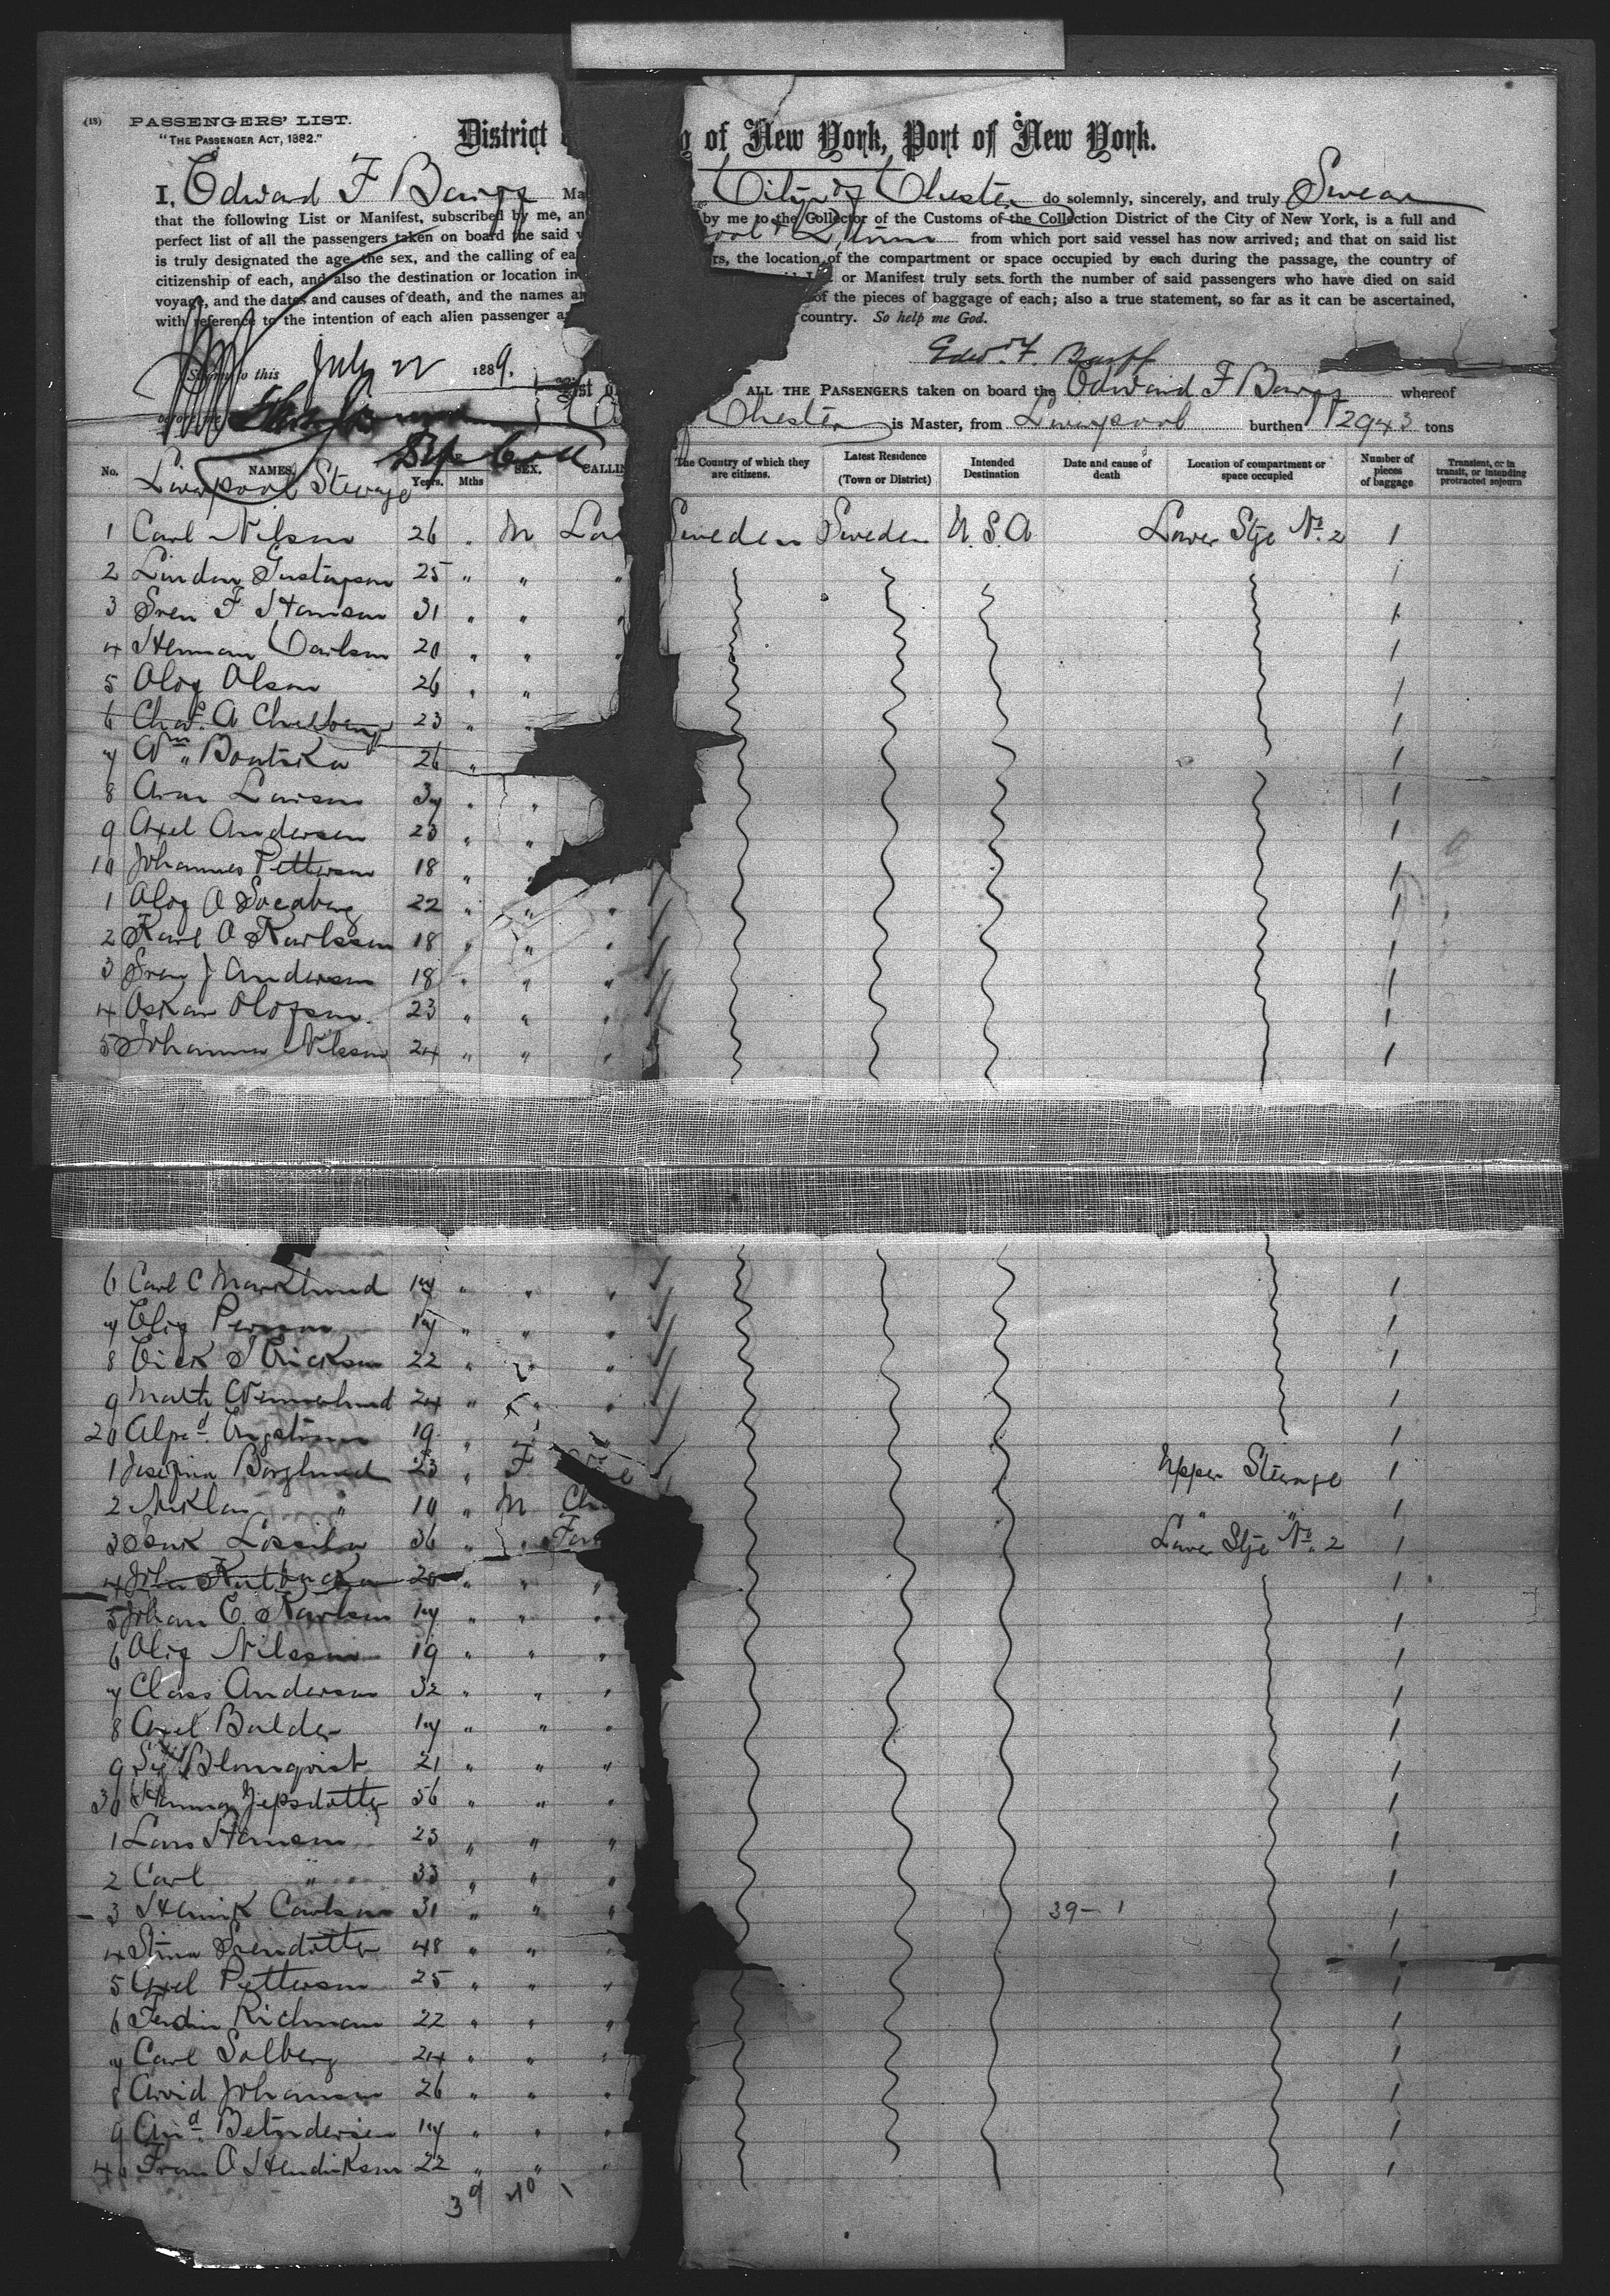 (18) PASSENGERS' LIST.
"THE PASSENGER ACT, 1882."
District of New York, Port of New York.
I, Edward F Barff Ma City of Chester do solemnly, sincerely, and truly Swear
that the following List or Manifest, subscribed by me, an by me to the Collector of the Customs of the Collection District of the City of New York, is a full and
perfect list of all the passengers taken on board the said from which port said vessel has now arrived; and that on said list
is truly designated the age, the sex, and the calling of ea rs, the location of the compartment or space occupied by each during the passage, the country of
citizenship of each, and also the destination or location in or Manifest truly sets forth the number of said passengers who have died on said
voyage, and the dates and causes of death, and the names an of the pieces of baggage of each; also a true statement, so far as it can be ascertained,
with reference to the intention of each alien passenger as country. So help me God.
Edwd. F. Barff
Sworn to this July 22 1889.
List ALL THE PASSENGERS taken on board the Edward F Barff whereof
before me Chester is Master, from Liverpool burthen 2943 tons
Dep Coll
No. NAMES. Years. Mths SEX. CALLIN The Country of which they are citizens. Latest Residence (Town or District) Intended Destination Date and cause of death Location of compartment or space occupied Number of pieces of baggage Transient, or in transit, or intending protracted sojourn
Liverpool Steerage
1 Carl Nilson 26 " M Lab Sweden Sweden U.S.A Lower Stge No. 2 1
2 Lindon Gustafson 25 " " " 1
3 Sven F Hanson 31 " " " 1
4 Herman Carlson 20 " " " 1
5 Olof Olson 26 " " 1
6 Chas. A 23 " " 1
7 Wm " 26 " 1
8 Aron Larson 37 " " 1
9 Axel Andersen 23 " " 1
10 Johannes Petterson 18 " " 1
1 Olof A 22 " " " 1
2 Karl A Karlsson 18 " " " 1
3 Sven J Anderson 18 " " " 1
4 Oskar Olofson 23 " " " 1
5 Johannes Nilsson 24 " " " 1
6 Carl C Marklund 17 " " " 1
7 Olof Person 17 " " " 1
8 Erick J Erickson 22 " " " 1
9 24 " " 1
20 Alfrd. Engstrom 19 " 1
1 Josefina Berglund 23 " F Upper Steerage 1
2 Niklas " 10 " M Ch " " 1
3 Isak 36 " " Far Lower Stge No. 2 1
4 John 20 " " " 1
5 Johan E. Karlson 17 " " " 1
6 Olof Nilsson 19 " " " 1
7 Class Anderson 32 " " " 1
8 Axel Balder 17 " " " 1
9 Blomqvist 21 " " " 1
30 Hanna Jepsdotter 56 " " " 1
1 Lars Hansen 23 " " " 1
2 Carl " 33 " " " 1
3 Henrik Carlson 31 " " " 39 - 1 1
4 Stina Svendotter 48 " " " 1
5 Axel Petterson 25 " " " 1
6 Ferdin Richman 22 " " " 1
7 Carl Solberg 24 " " " 1
8 Arvid Johanson 26 " " " 1
9 17 " " " 1
40 Frans A Hendrikson 22 " " " 1
39 40 1